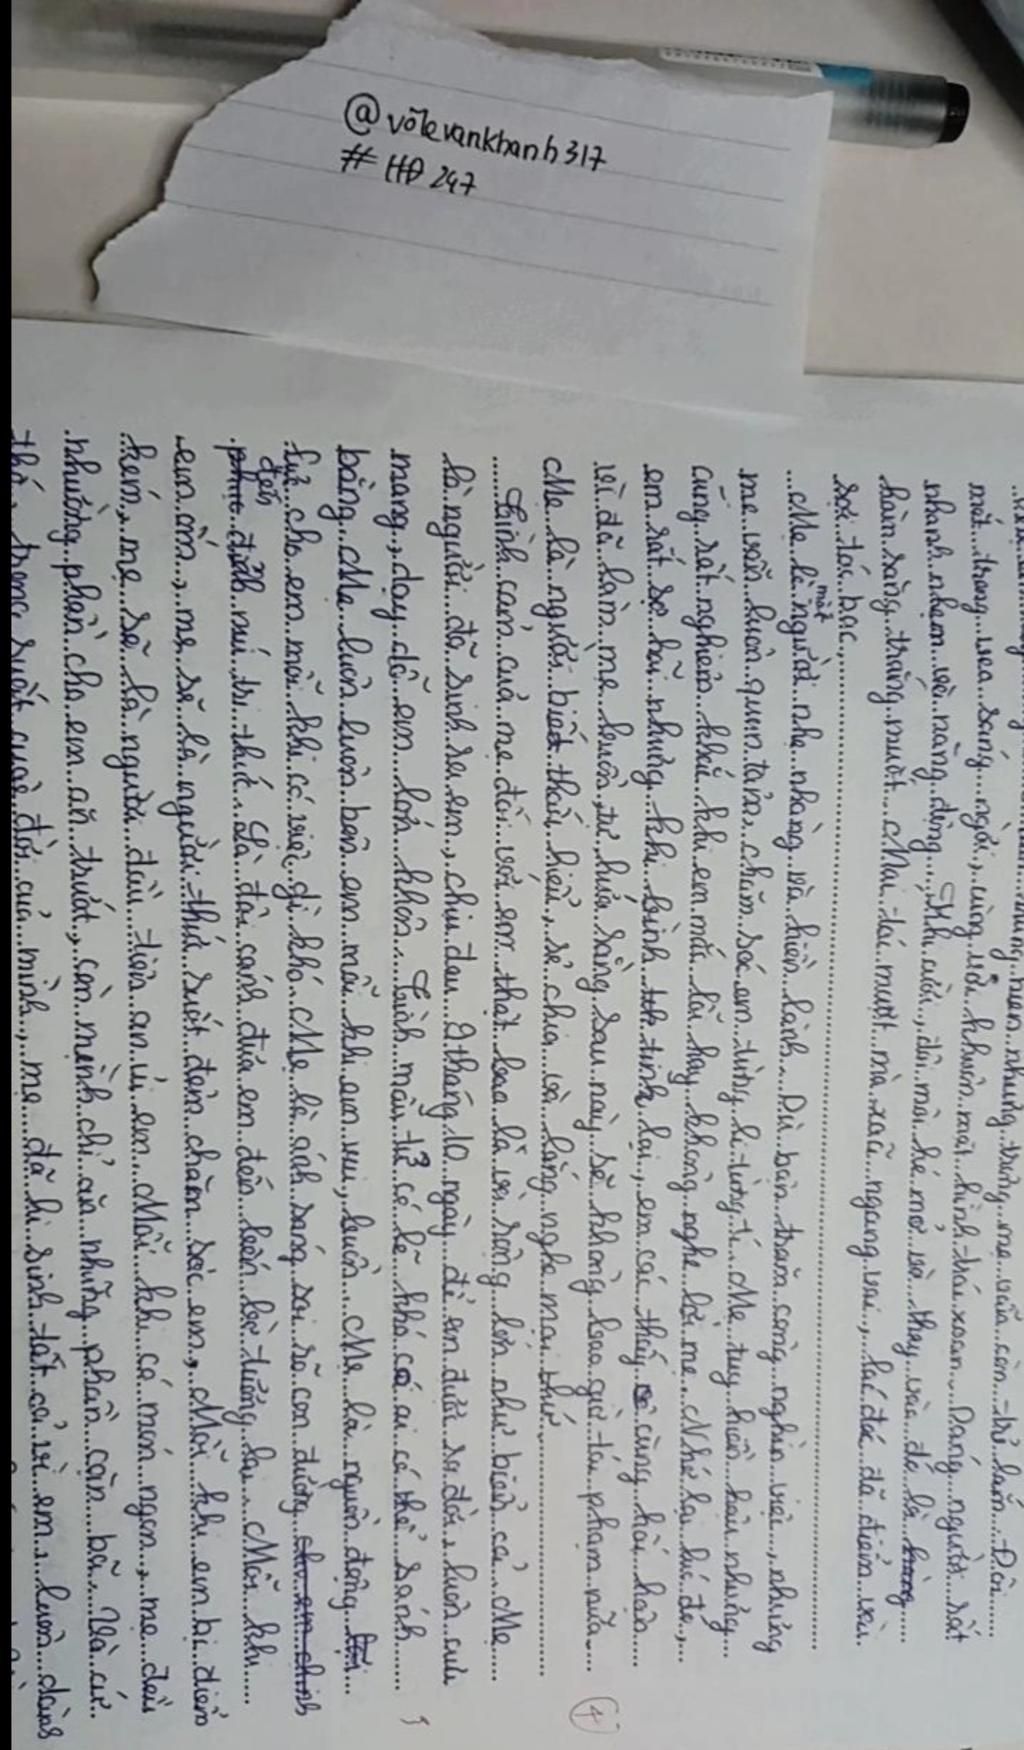 @võlevankhanh317
#HĐ247
mắt trong veo sáng ngời, cùng với khuôn mặt hình trái xoan. Dáng người rất
nhanh nhẹn và năng động. Khi cười, đôi môi hé mở và thay vào đó là hàng
hàm răng trắng muốt. Mái tóc mượt mà xoã ngang vai, lác đác đã điểm vài
sợi tóc bạc.
Mẹ là một người nhẹ nhàng và hiền lành. Dù bận trăm công nghìn việc, nhưng
mẹ vẫn luôn quan tâm, chăm sóc em từng li từng tí. Mẹ tuy hiền hậu nhưng
cũng rất nghiêm khắc khi em mắc lỗi hay không nghe lời mẹ. Nhớ lại lúc đó,
em rất sợ hãi nhưng khi bình tĩnh lại, em cảm thấy vô cùng hối hận
vì đã làm mẹ buồn, tự hứa rằng sau này sẽ không bao giờ tái phạm nữa
Mẹ là người biết thấu hiểu, sẻ chia và lắng nghe mọi thứ.
Tình cảm của mẹ đối với em thật bao la và rộng lớn như biển cả. Mẹ
là người đã sinh ra em, chịu đau 9 tháng 10 ngày để em được ra đời, luôn cưu
mang, dạy dỗ em lớn khôn. Tình mẫu tử có lẽ khó có ai có thể sánh
bằng. Mẹ luôn luôn bên em mỗi khi em vui, buồn. Mẹ là nguồn động
lực cho em mỗi khi có việc gì khó. Mẹ là ánh sáng soi rõ con đường
đến núi tri thức. Là đôi cánh đưa em đến bến bờ tương lai. Mỗi khi
em ốm, mẹ sẽ là người thức suốt đêm chăm sóc em. Mỗi khi em bị điểm
kém, mẹ sẽ là người đầu tiên an ủi em. Mỗi khi có món ngon, mẹ đều
nhường phần cho em ăn trước, còn mình chỉ ăn những phần cặn bã. Và cứ
thế, trong suốt cuộc đời của mình, mẹ đã hi sinh tất cả vì em, luôn dành